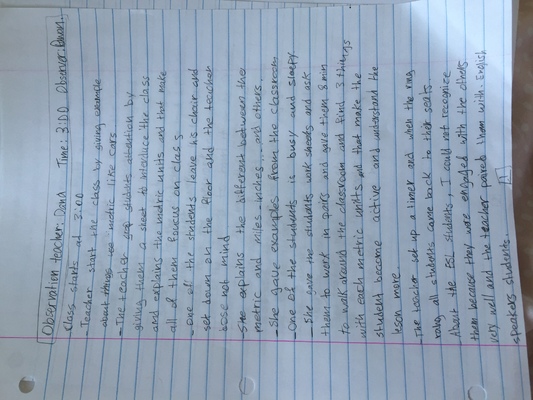 Observation teacher: Dana Time: 3:00 Observer: Eman
Class starts at 3:00
Teacher start the class by giving example
about metric like cars
- The teacher students attention by
giving them a sheet to introduce the class
and explains the metric units and that make
all of them focus on class
- One of the students leave his chair and
set down on the floor and the teacher
dose not mind
- She explains the different between the
metric and miles inches... and others.
- She gave examples from the classroom
- One of the students is busy and sleepy
- She gave the students work sheets and ask
them to work in pairs and gave them 8 min
to walk around the classroom and find 3 things
with each metric units that make the
student become active and understand the
lesson more
- The teacher set up a timer and when the ring
rang all students came back to their seats.
About the ESL students I could not recognize
them because they were engaged with the others
very well and the teacher paired them with English
speakers students.